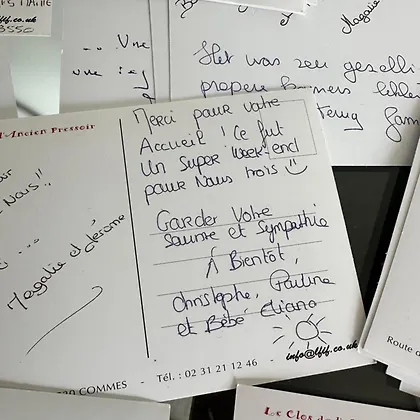 Vne
Magalie
3550
ff.co.uk
Het was zeer gezelli
propere kamers lekker
Merci pour votre
Accueil ! Ce fut
Un super week-end
pour Nous trois
Garder Votre
sourire et Sympathie
À Bientôt,
christophe, Pauline
et Bébé eliana
info@fflf.co.uk
l'Ancien Pressoir
Nous !!
Magalie et Jérôme
COMMES - Tél. : 02 31 21 12 46 -
Route
Le Clos de l'